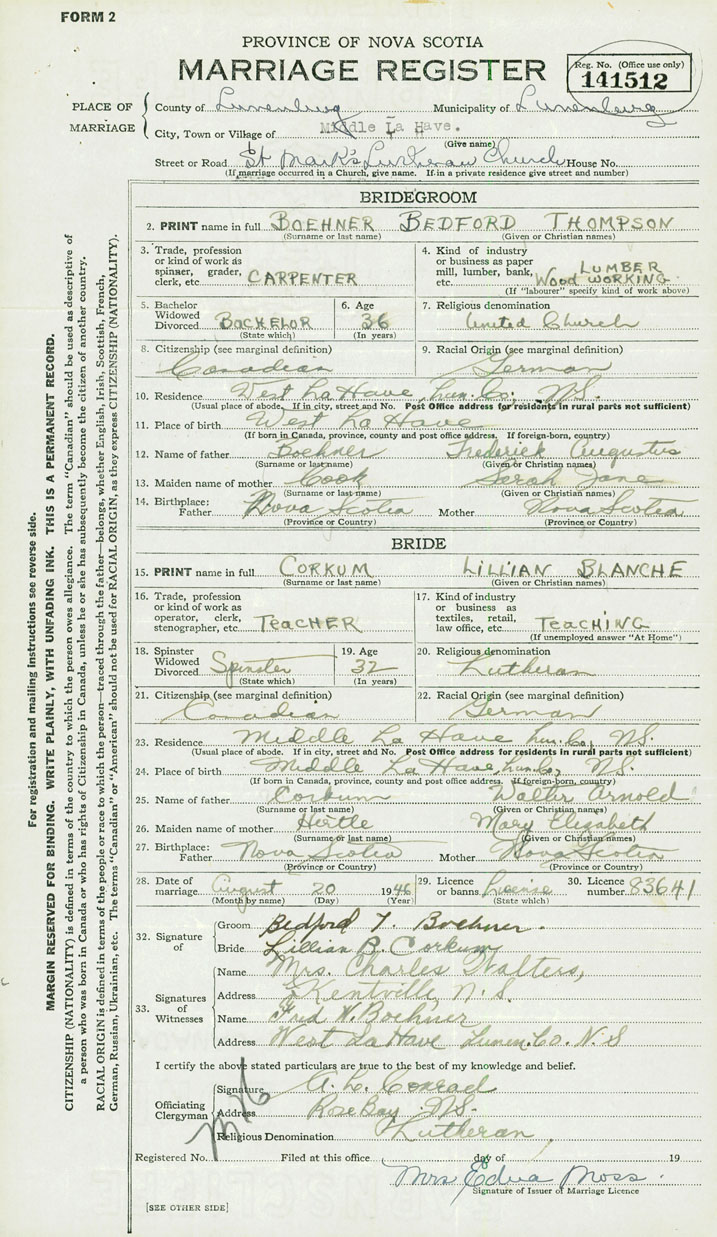 FORM 2
PROVINCE OF NOVA SCOTIA
MARRIAGE REGISTER
Reg. No. (Office use only)
141512
PLACE OF MARRIAGE
County of Lunenburg Municipality of Lunenburg
City, Town or Village of Middle La Have.
(Give name)
Street or Road St Mark's Lutheran Church House No.
(If marriage occurred in a Church, give name. If in a private residence give street and number)
BRIDEGROOM
2. PRINT name in full BOEHNER BEDFORD THOMPSON
(Surname or last name) (Given or Christian names)
3. Trade, profession or kind of work as spinner, grader, clerk, etc. CARPENTER
4. Kind of industry or business as paper mill, lumber, bank, etc. LUMBER Wood WORKING
(If "labourer" specify kind of work above)
5. Bachelor Widowed Divorced BACHELOR
(State which)
6. Age 36
(In years)
7. Religious denomination United Church
8. Citizenship (see marginal definition) Canadian
9. Racial Origin (see marginal definition) German
10. Residence West La Have, Lun. Co., N.S.
(Usual place of abode. If in city, street and No. Post Office address for residents in rural parts not sufficient)
11. Place of birth West La Have
(If born in Canada, province, county and post office address. If foreign-born, country)
12. Name of father Boehner Frederick Augustus
(Surname or last name) (Given or Christian names)
13. Maiden name of mother Cook Serah Jane
(Surname or last name) (Given or Christian names)
14. Birthplace: Father Nova Scotia Mother Nova Scotia
(Province or Country) (Province or Country)
BRIDE
15. PRINT name in full CORKUM LILLIAN BLANCHE
(Surname or last name) (Given or Christian names)
16. Trade, profession or kind of work as operator, clerk, stenographer, etc. TEACHER
17. Kind of industry or business as textiles, retail, law office, etc. TEACHING
(If unemployed answer "At Home")
18. Spinster Widowed Divorced Spinster
(State which)
19. Age 32
(In years)
20. Religious denomination Lutheran
21. Citizenship (see marginal definition) Canadian
22. Racial Origin (see marginal definition) German
23. Residence Middle La Have Lun. Co., N.S.
(Usual place of abode. If in city, street and No. Post Office address for residents in rural parts not sufficient)
24. Place of birth Middle La Have, Lun. Co., N.S.
(If born in Canada, province, county and post office address. If foreign-born, country)
25. Name of father Corkum Walter Arnold
(Surname or last name) (Given or Christian names)
26. Maiden name of mother Hertle Mary Elizabeth
(Surname or last name) (Given or Christian names)
27. Birthplace: Father Nova Scotia Mother Nova Scotia
(Province or Country) (Province or Country)
28. Date of marriage August 20 1946
(Month by name) (Day) (Year)
29. Licence or banns License
(State which)
30. Licence number 83641
32. Signature of
Groom Bedford T. Boehner.
Bride Lillian B. Corkum
33. Signatures of Witnesses
Name Mrs. Charles Walters,
Address Kentville, N.S.
Name Fred W. Boehner
Address West La Have Lunen. Co. N.S
I certify the above stated particulars are true to the best of my knowledge and belief.
Officiating Clergyman
Signature A. L. Conrad
Address Rose Bay N.S.
Religious Denomination Lutheran
Registered No. Filed at this office day of 19
Mrs Edna Moss.
Signature of Issuer of Marriage Licence
[SEE OTHER SIDE]
For registration and mailing instructions see reverse side.
MARGIN RESERVED FOR BINDING. WRITE PLAINLY, WITH UNFADING INK. THIS IS A PERMANENT RECORD.
CITIZENSHIP (NATIONALITY) is defined in terms of the country to which the person owes allegiance. The term "Canadian" should be used as descriptive of
a person who was born in Canada or who has rights of Citizenship in Canada, unless he or she has subsequently become the citizen of another country.
RACIAL ORIGIN is defined in terms of the people or race to which the person—traced through the father—belongs, whether English, Irish, Scottish, French,
German, Russian, Ukrainian, etc. The terms "Canadian" or "American" should not be used for RACIAL ORIGIN, as they express CITIZENSHIP (NATIONALITY).